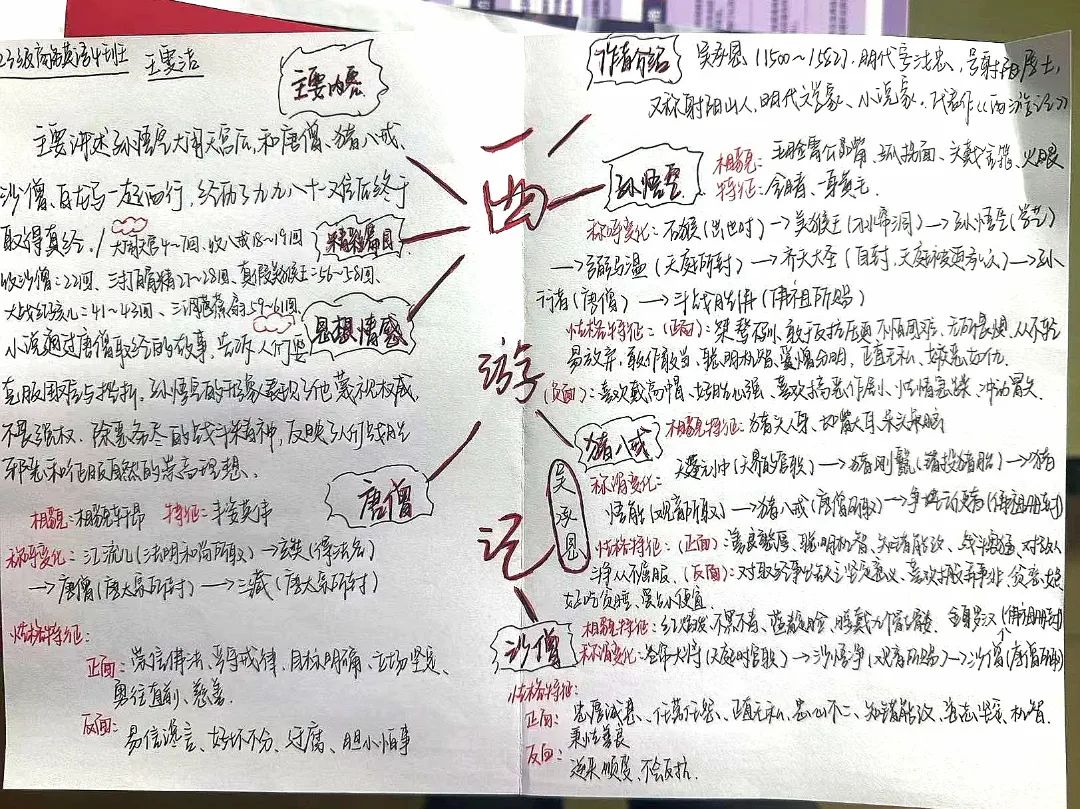 23级商务英语4班 王雯洁
主要内容
主要讲述孙悟空大闹天宫后,和唐僧、猪八戒、
沙僧、白龙马一起西行,经历了九九八十一难后终于
取得真经。
精彩篇目
大闹天宫4~7回、收八戒18~19回
收沙僧:22回、三打白骨精27~28回、真假美猴王:56~58回、
大战红孩儿:41~43回、三调芭蕉扇59~61回
思想情感
小说通过唐僧取经的故事,告诉人们要
克服困难与挫折。孙悟空的形象表现了他蔑视权威、
不畏强权、除恶务尽的战斗精神,反映了人们战胜
邪恶和征服自然的崇高理想。
唐僧
相貌:相貌轩昂 特征:丰姿英伟
称呼变化:江流儿(法明和尚所取)→玄奘(得法名)
→唐僧(唐太宗所封)→三藏(唐太宗所封)
性格特征:
正面:崇信佛法、严守戒律、目标明确、立场坚定、
勇往直前、慈善、
反面:
易信谗言、好坏不分、迂腐、胆小怕事
西
游
记
吴承恩
作者介绍
吴承恩(1500~1582),明代字汝忠,号射阳居士,
又称射阳山人,明代文学家、小说家。代表作《西游记》
孙悟空
相貌特征:毛脸雷公嘴、孤拐面、头戴金箍、火眼
金睛、一身黄毛
称呼变化:石猴(出世时)→美猴王(水帘洞)→孙悟空(学艺)
→弼马温(天庭所封)→齐天大圣(自封,天庭被迫承认)→孙
行者(唐僧)→斗战胜佛(佛祖所赐)
性格特征:(正面):桀骜不驯、敢于反抗压迫、不怕困难、无所畏惧、从不轻
易放弃,敢作敢当、聪明机智、爱憎分明、正直无私、嫉恶如仇
(反面):喜欢戴高帽、好胜心强、喜欢搞恶作剧、性情急躁、冲动冒失
猪八戒
相貌特征:猪头人身、切嘴大耳、呆头呆脑
称谓变化:天蓬元帅(天界的官职)→猪刚鬣(错投猪胎)→猪
悟能(观音所取)→猪八戒(唐僧所取)→净坛使者(佛祖册封)
性格特征:(正面):善良憨厚、聪明机智、知错能改、战斗勇猛、对敌人
斗争从不屈服、(反面):对取经事业缺乏坚定意义、喜欢搬弄是非、贪恋女色
好吃贪睡、爱占小便宜
沙僧
相貌特征:红焰发、不黑不青、蓝靛脸、腰戴九个骷髅
金身罗汉(佛祖册封)
称谓变化:卷帘大将(天庭时官职)→沙悟净(观音所赐)→沙僧(唐僧所取)
性格特征:
正面:忠厚诚恳、任劳任怨、正直无私、忠心不二、知错能改、意志坚定、机智、
秉性善良
反面:
逆来顺受、不会反抗